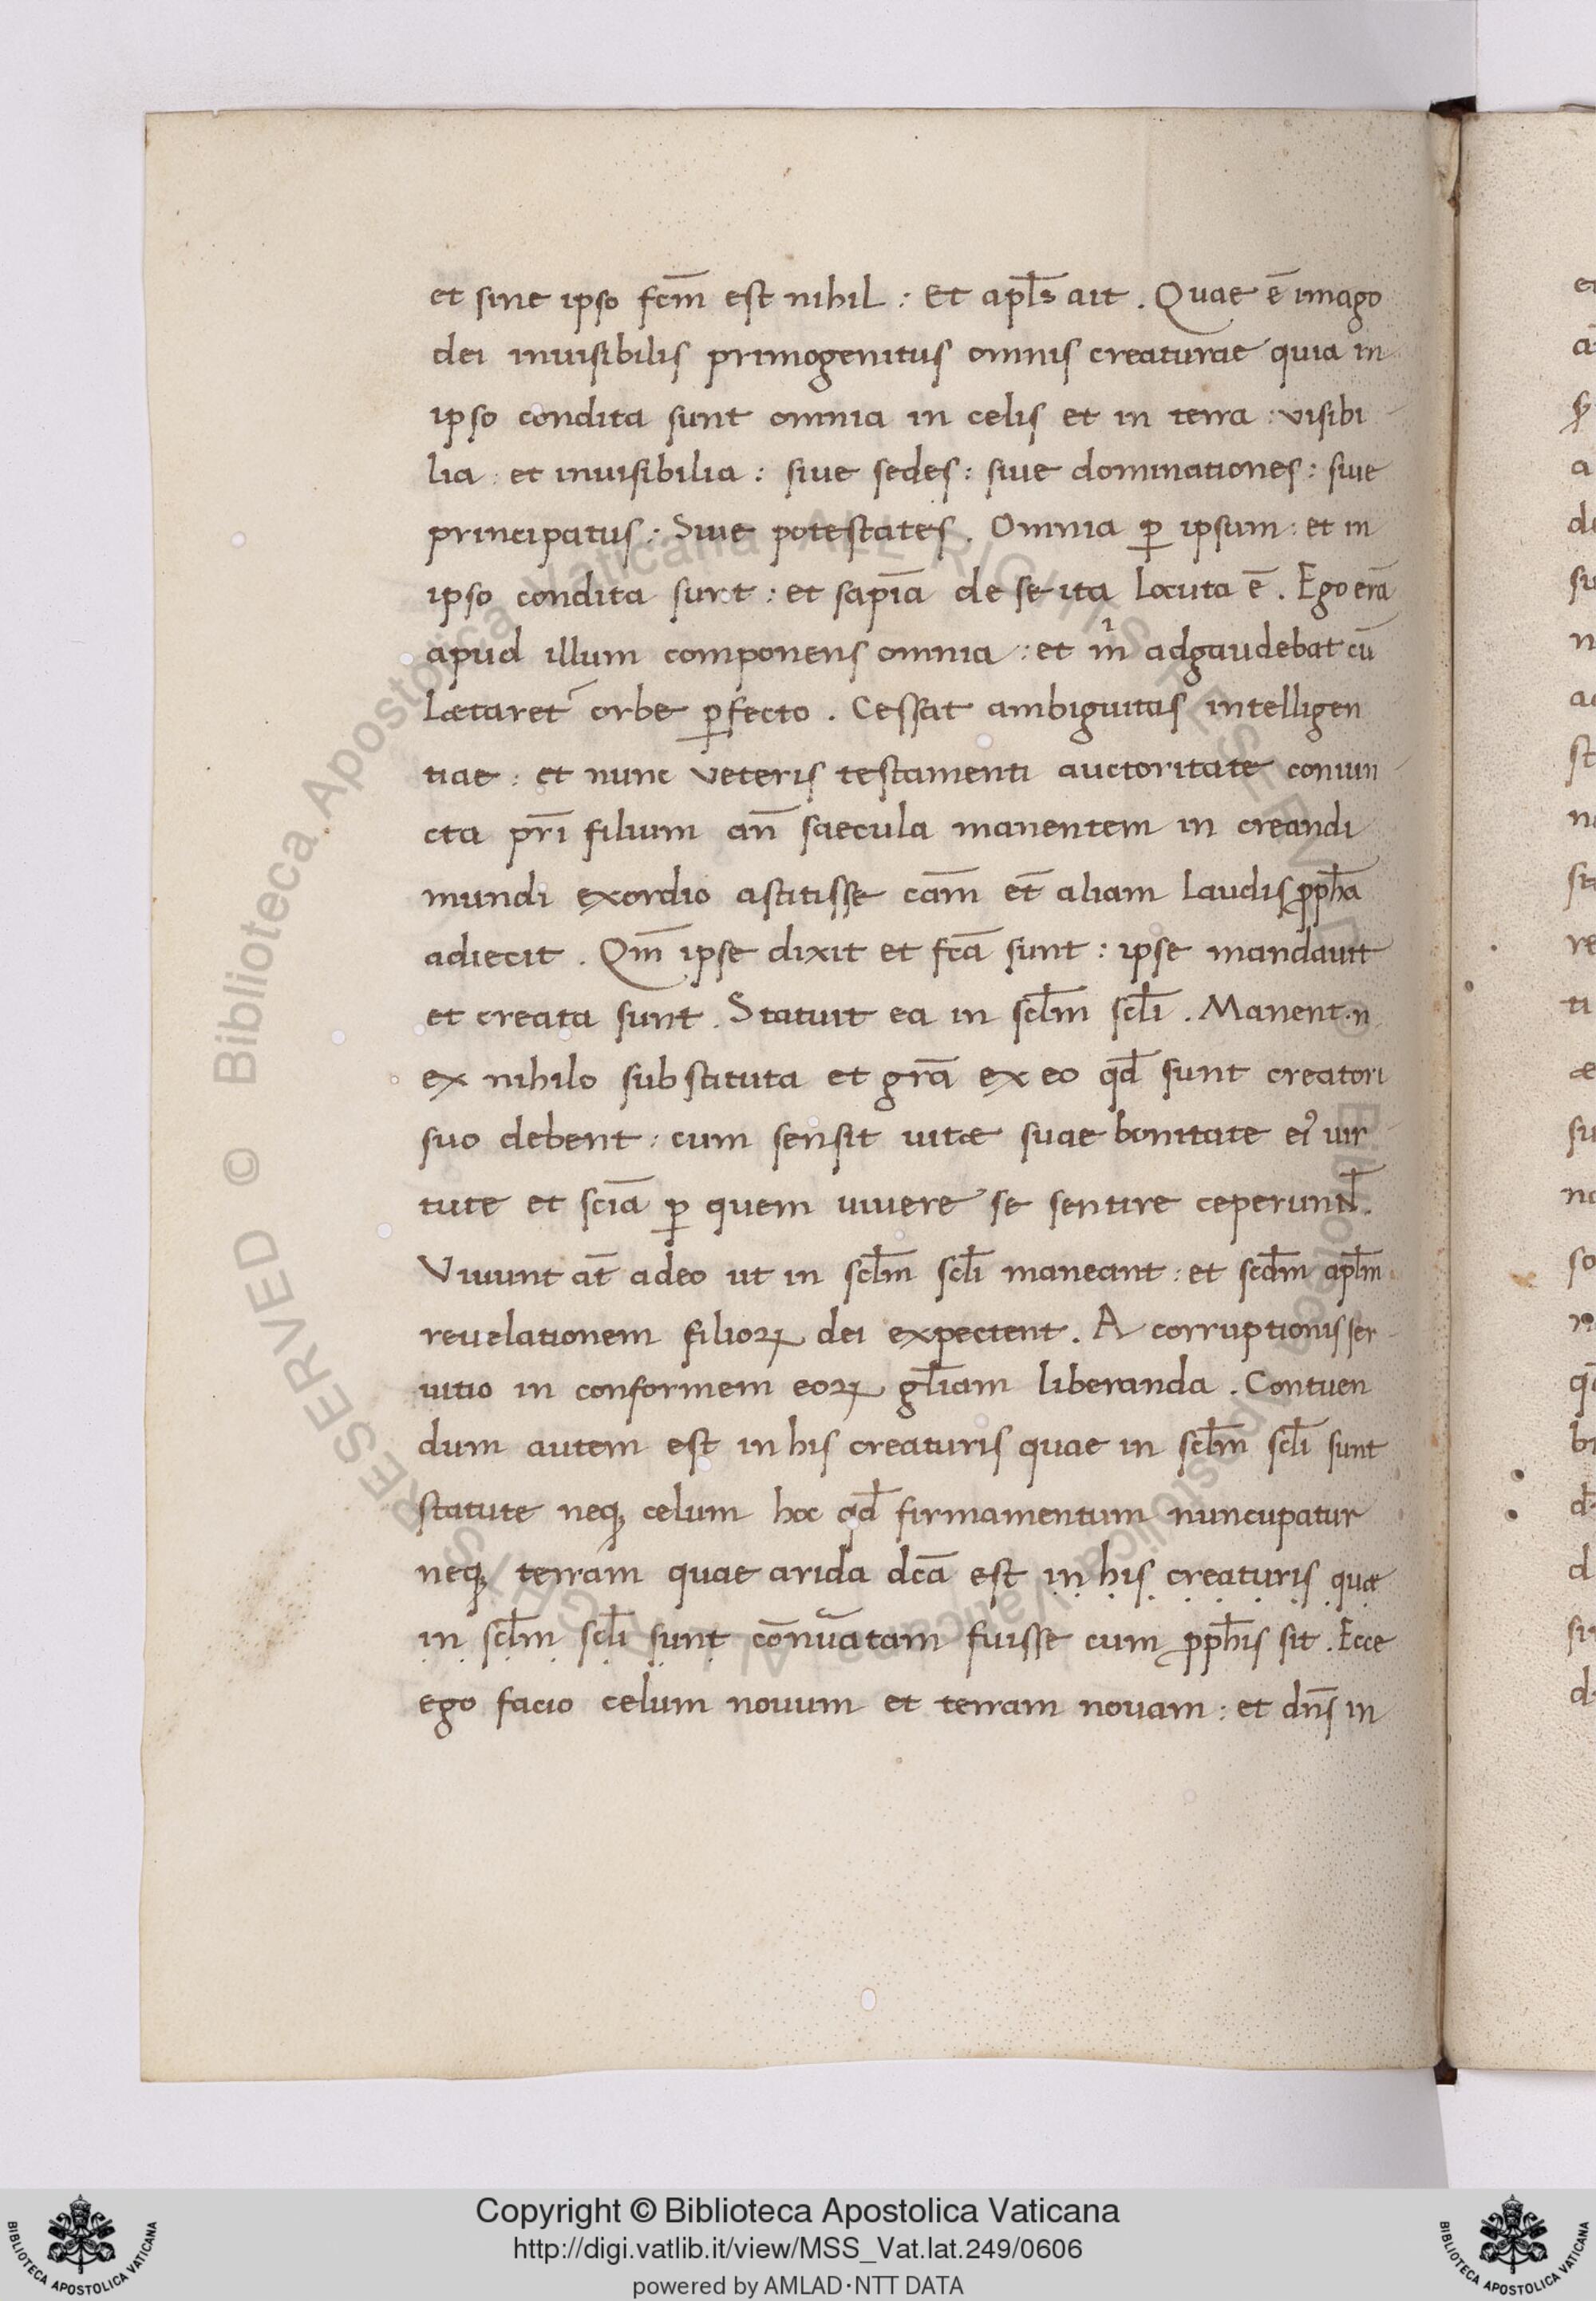 et sine ipso fcm̄ est nihil : Et apl̄s ait . Quae ē imago
dei inuisibilis primogenitus omnis creaturae quia in
ipso condita sunt omnia in celis et in terra : visibi
lia : et inuisibilia : siue sedes : siue dominationes : siue
principatus : Siue potestates . Omnia ꝑ ipsum : et in
ipso condita sunt : et sapīa de se ita locuta ē . Ego erā
apud illum componens omnia : et m̊ adgaudebat cū
Lætaret᷑ orbe ꝑfecto . Cessat ambiguitas intelligen
tiae : et nunc veteris testamenti auctoritate coniun
cta pr̄i filium an̄ saecula manentem in creandi
mundi exordio astitisse cām et̄ aliam Laudis ꝓph̄a
adiecit . Qm̄ ipse dixit et fcā sunt : ipse mandauit
et creata sunt . Statuit ea in scl̄m scl̄i . Manent .n.
ex nihilo substituta et gr̄a ex eo qd̄ sunt creatori
suo debent : cum sensit uitæ suae bonitate ei᾽ uir
tute et scīa ꝑ quem uiuere se sentire ceperunt .
Viuunt āt adeo ut in scl̄m scl̄i maneant : et scd̄m apl̄m
reuelationem filioꝝ dei expectent . A corruptionis ser
uitio in conformem eoꝝ gl̄iam liberanda . Contuen
dum autem est in his creaturis quae in scl̄m scl̄i sunt
statute neqꝫ celum hoc qd̄ firmamentum nuncupatur
neqꝫ terram quae arida dcā est in his creaturis quæ
in scl̄m scl̄i sunt cōnūatam fuisse cum ꝓph̄is sit . Ecce
ego facio celum nouum et terram nouam : et dn̄s in
© Biblioteca Apostolica Vaticana ALL RIGHTS RESERVED
Copyright © Biblioteca Apostolica Vaticana
http://digi.vatlib.it/view/MSS_Vat.lat.249/0606
powered by AMLAD·NTT DATA
BIBLIOTECA APOSTOLICA VATICANA
BIBLIOTECA APOSTOLICA VATICANA